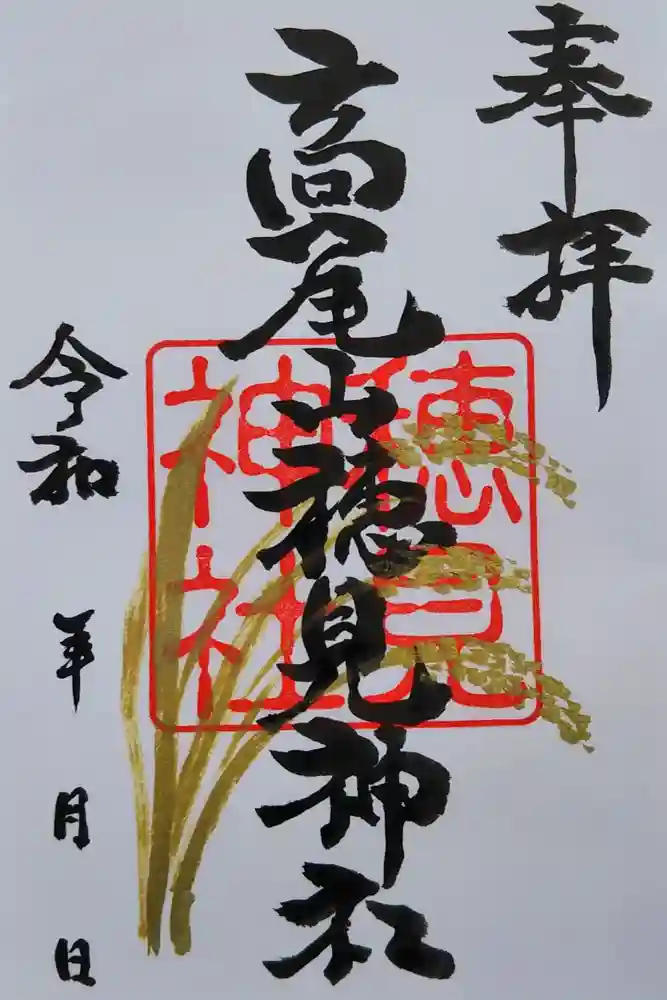 奉拝
高尾山穂見神社
穂見
神社
令和 年 月 日